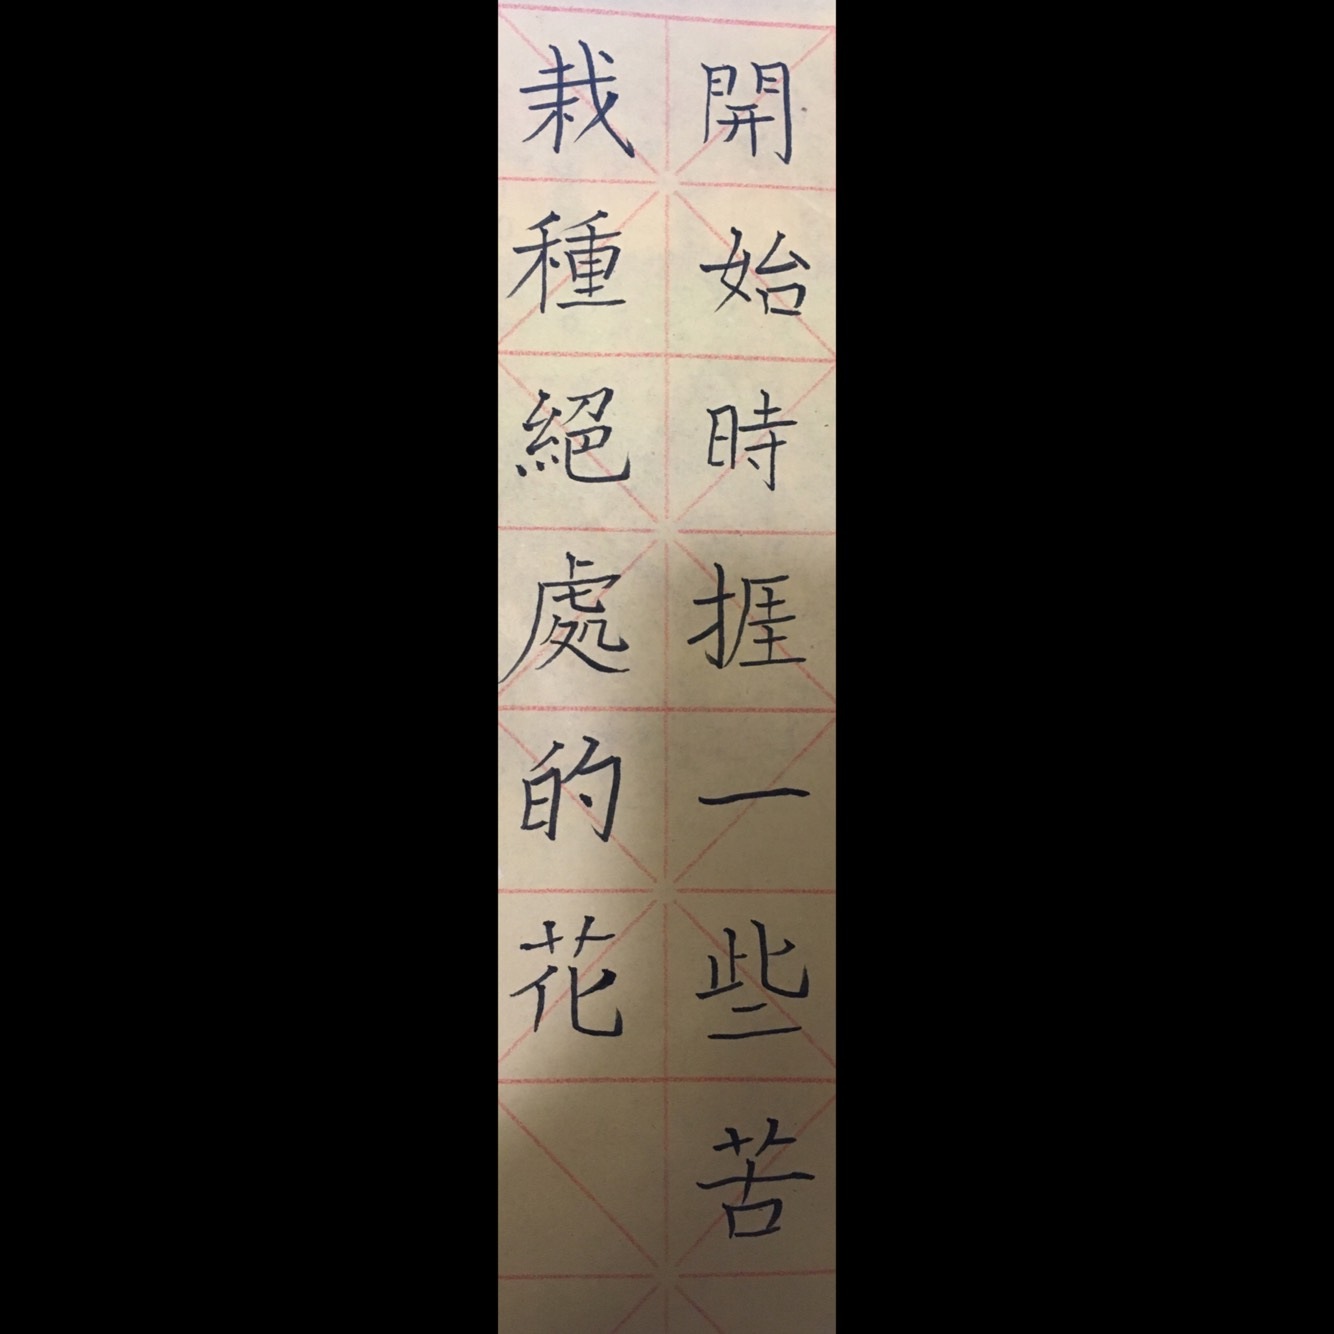 開始時捱一些苦
栽種絕處的花